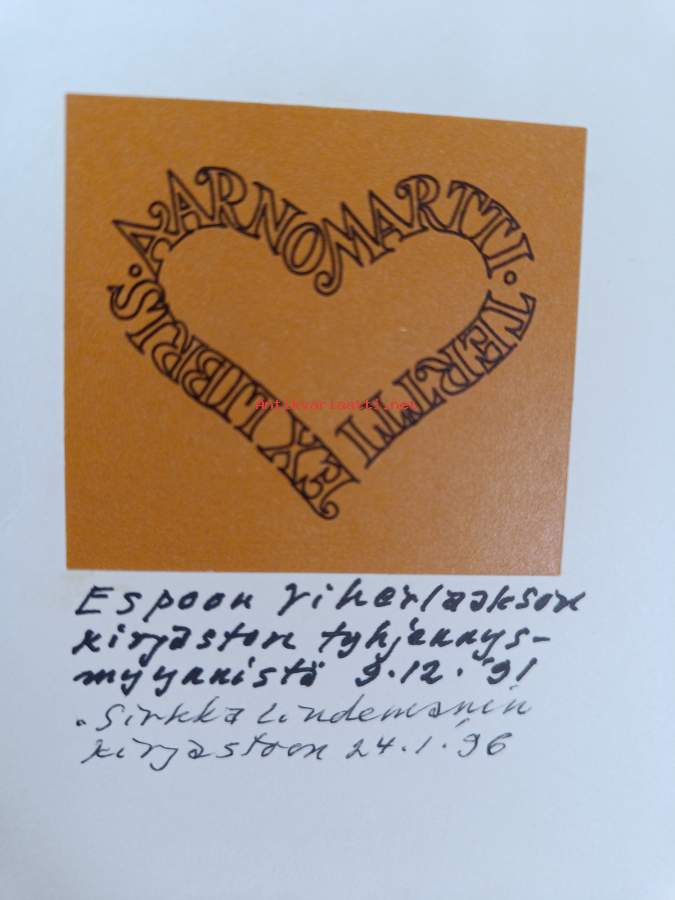 AARNOMARTTI · TERITTI
EX LIBRIS ·
Antikvariaatti.net
Espoon Viherlaakson
kirjaston tyhjennys-
myynnistä 9.12.'91
. Sirkka Lindemanin
kirjastoon 24.1.96